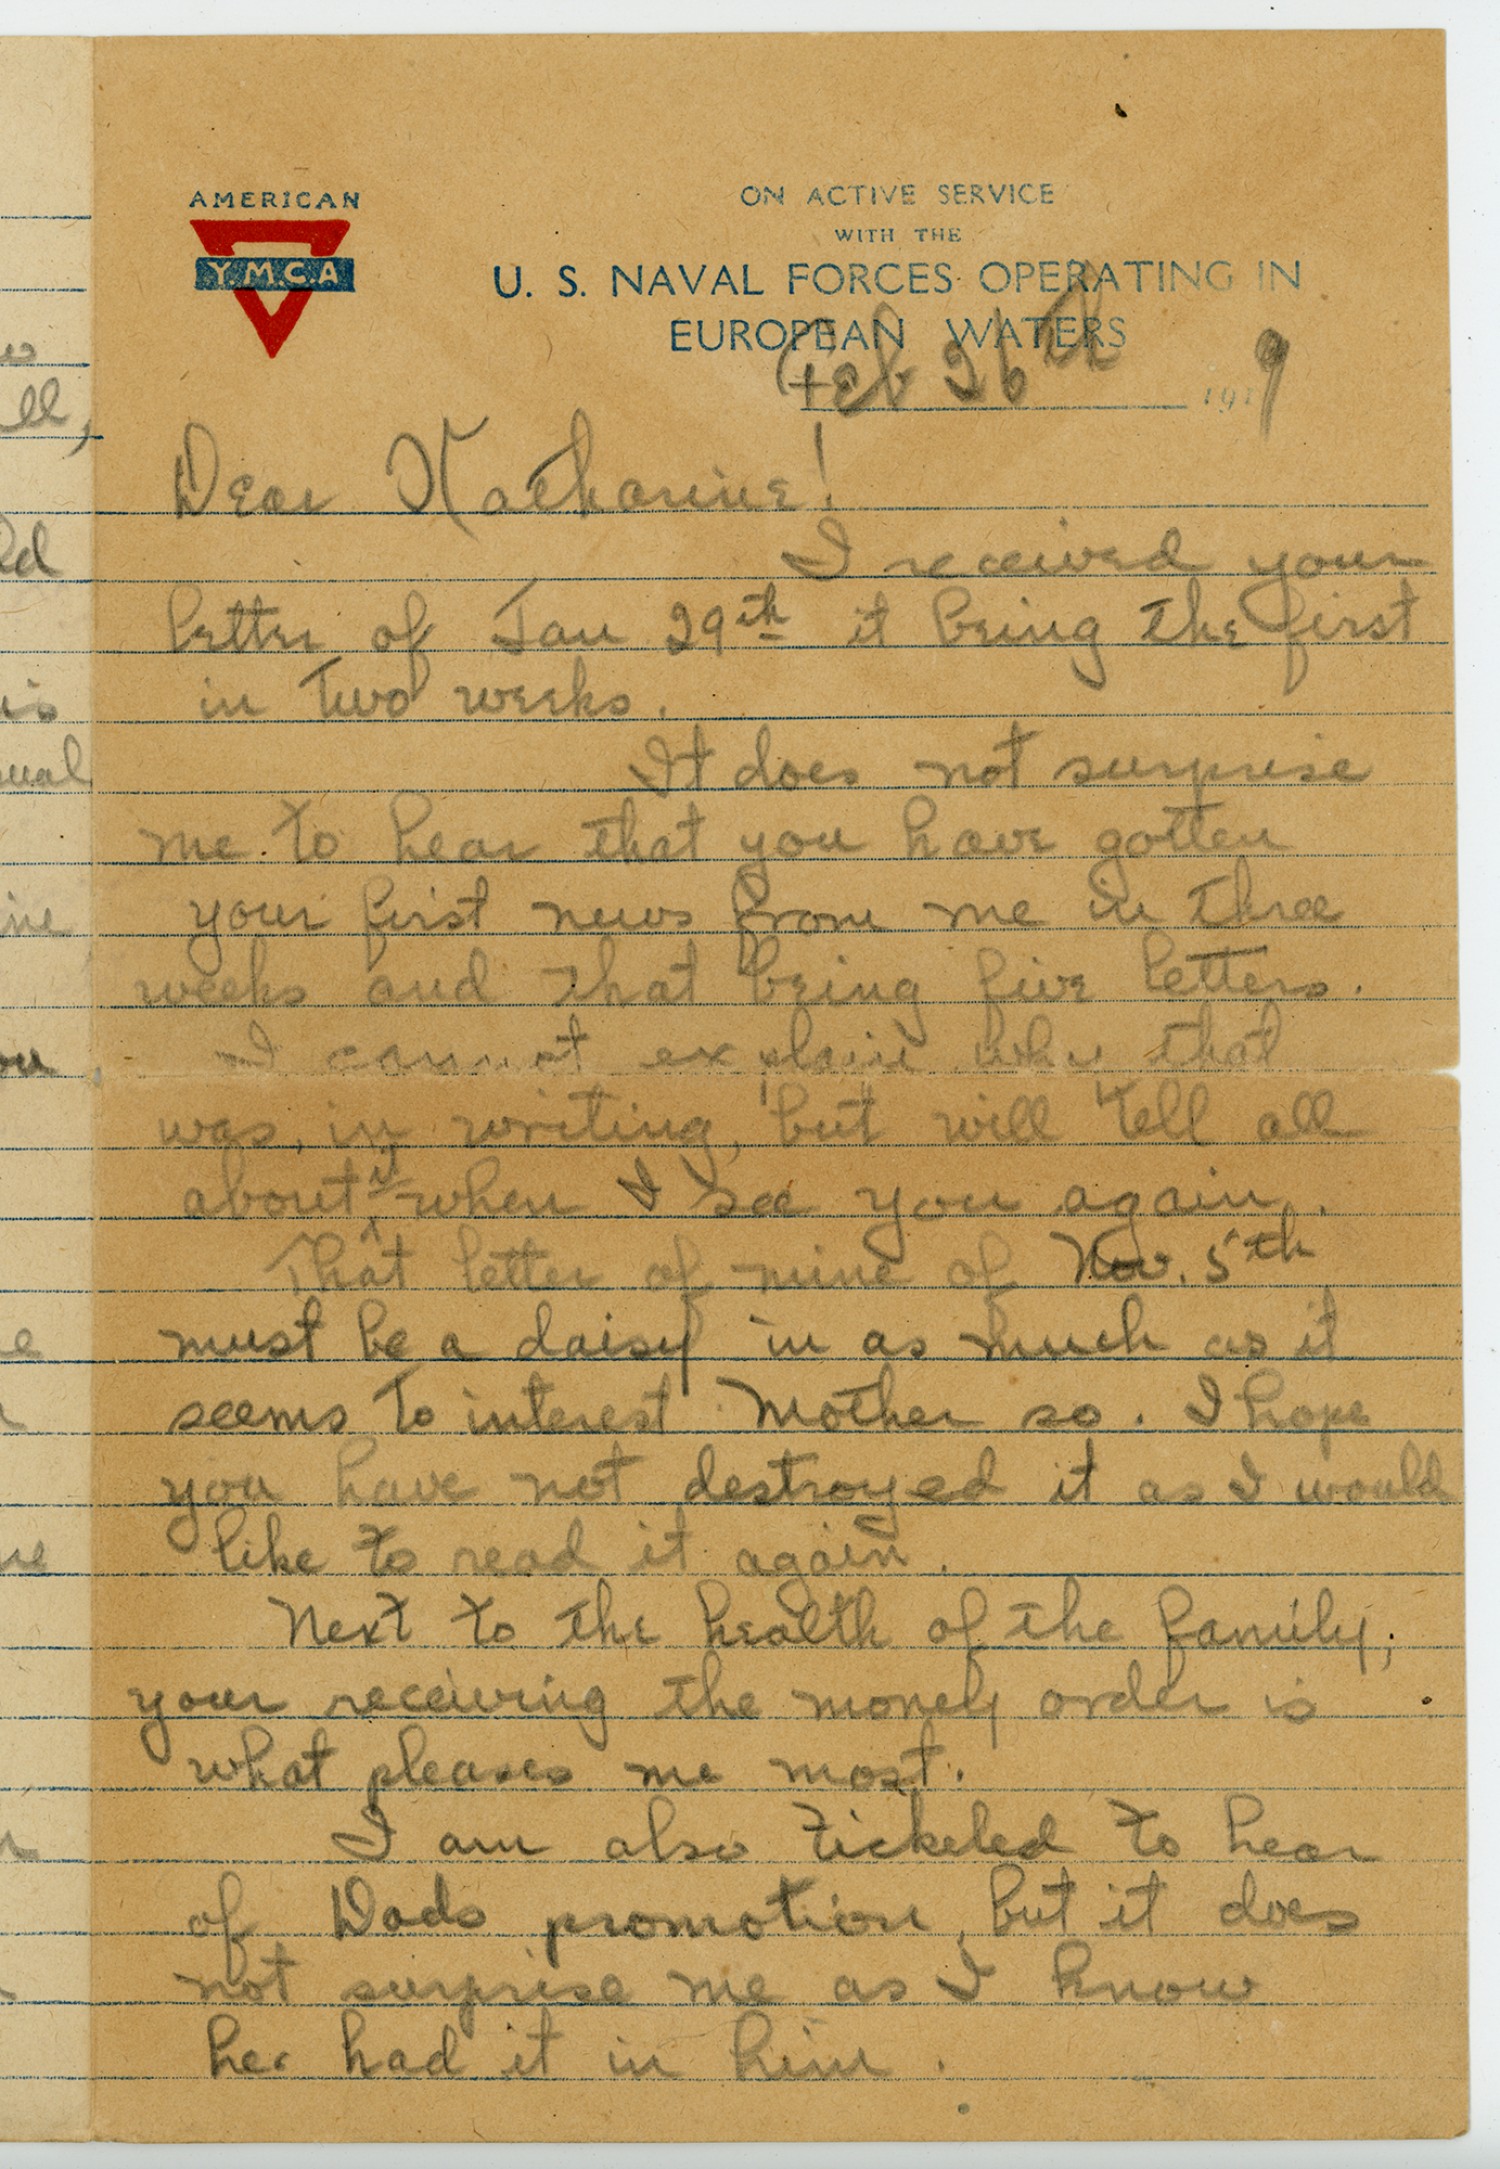 AMERICAN
Y.M.C.A
ON ACTIVE SERVICE
WITH THE
U. S. NAVAL FORCES OPERATING IN
EUROPEAN WATERS
Feb 26th 1919
Dear Katharine!
I received your
letter of Jan 29th it being the first
in two weeks.
It does not surprise
me to hear that you have gotten
your first news from me in three
weeks and that being five letters.
I cannot explain why that
was, in writing, but will tell all
about it when I see you again.
That letter of mine of Nov. 5th
must be a daisy in as much as it
seems to interest Mother so. I hope
you have not destroyed it as I would
like to read it again.
Next to the health of the family,
your receiving the money order is
what pleases me most.
I am also tickeled to hear
of Dads promotion, but it does
not surprise me as I know
he had it in him.